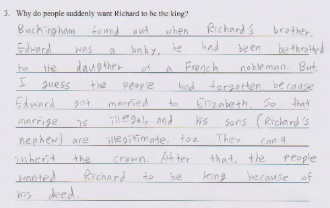 3. Why do people suddenly want Richard to be the king?
Buckingham found out when Richard's brother,
Edward was a baby, he had been bethrothed
to the daugther of a French nobleman. But,
I guess the people had forgotten because
Edward got married to Erizabeth. So that
marriage is illegal, and his sons (Richard's
nephew) are illegitimate, too. They can't
inherit the crown. After that, the people
wanted Richard to be king because of
his deed.